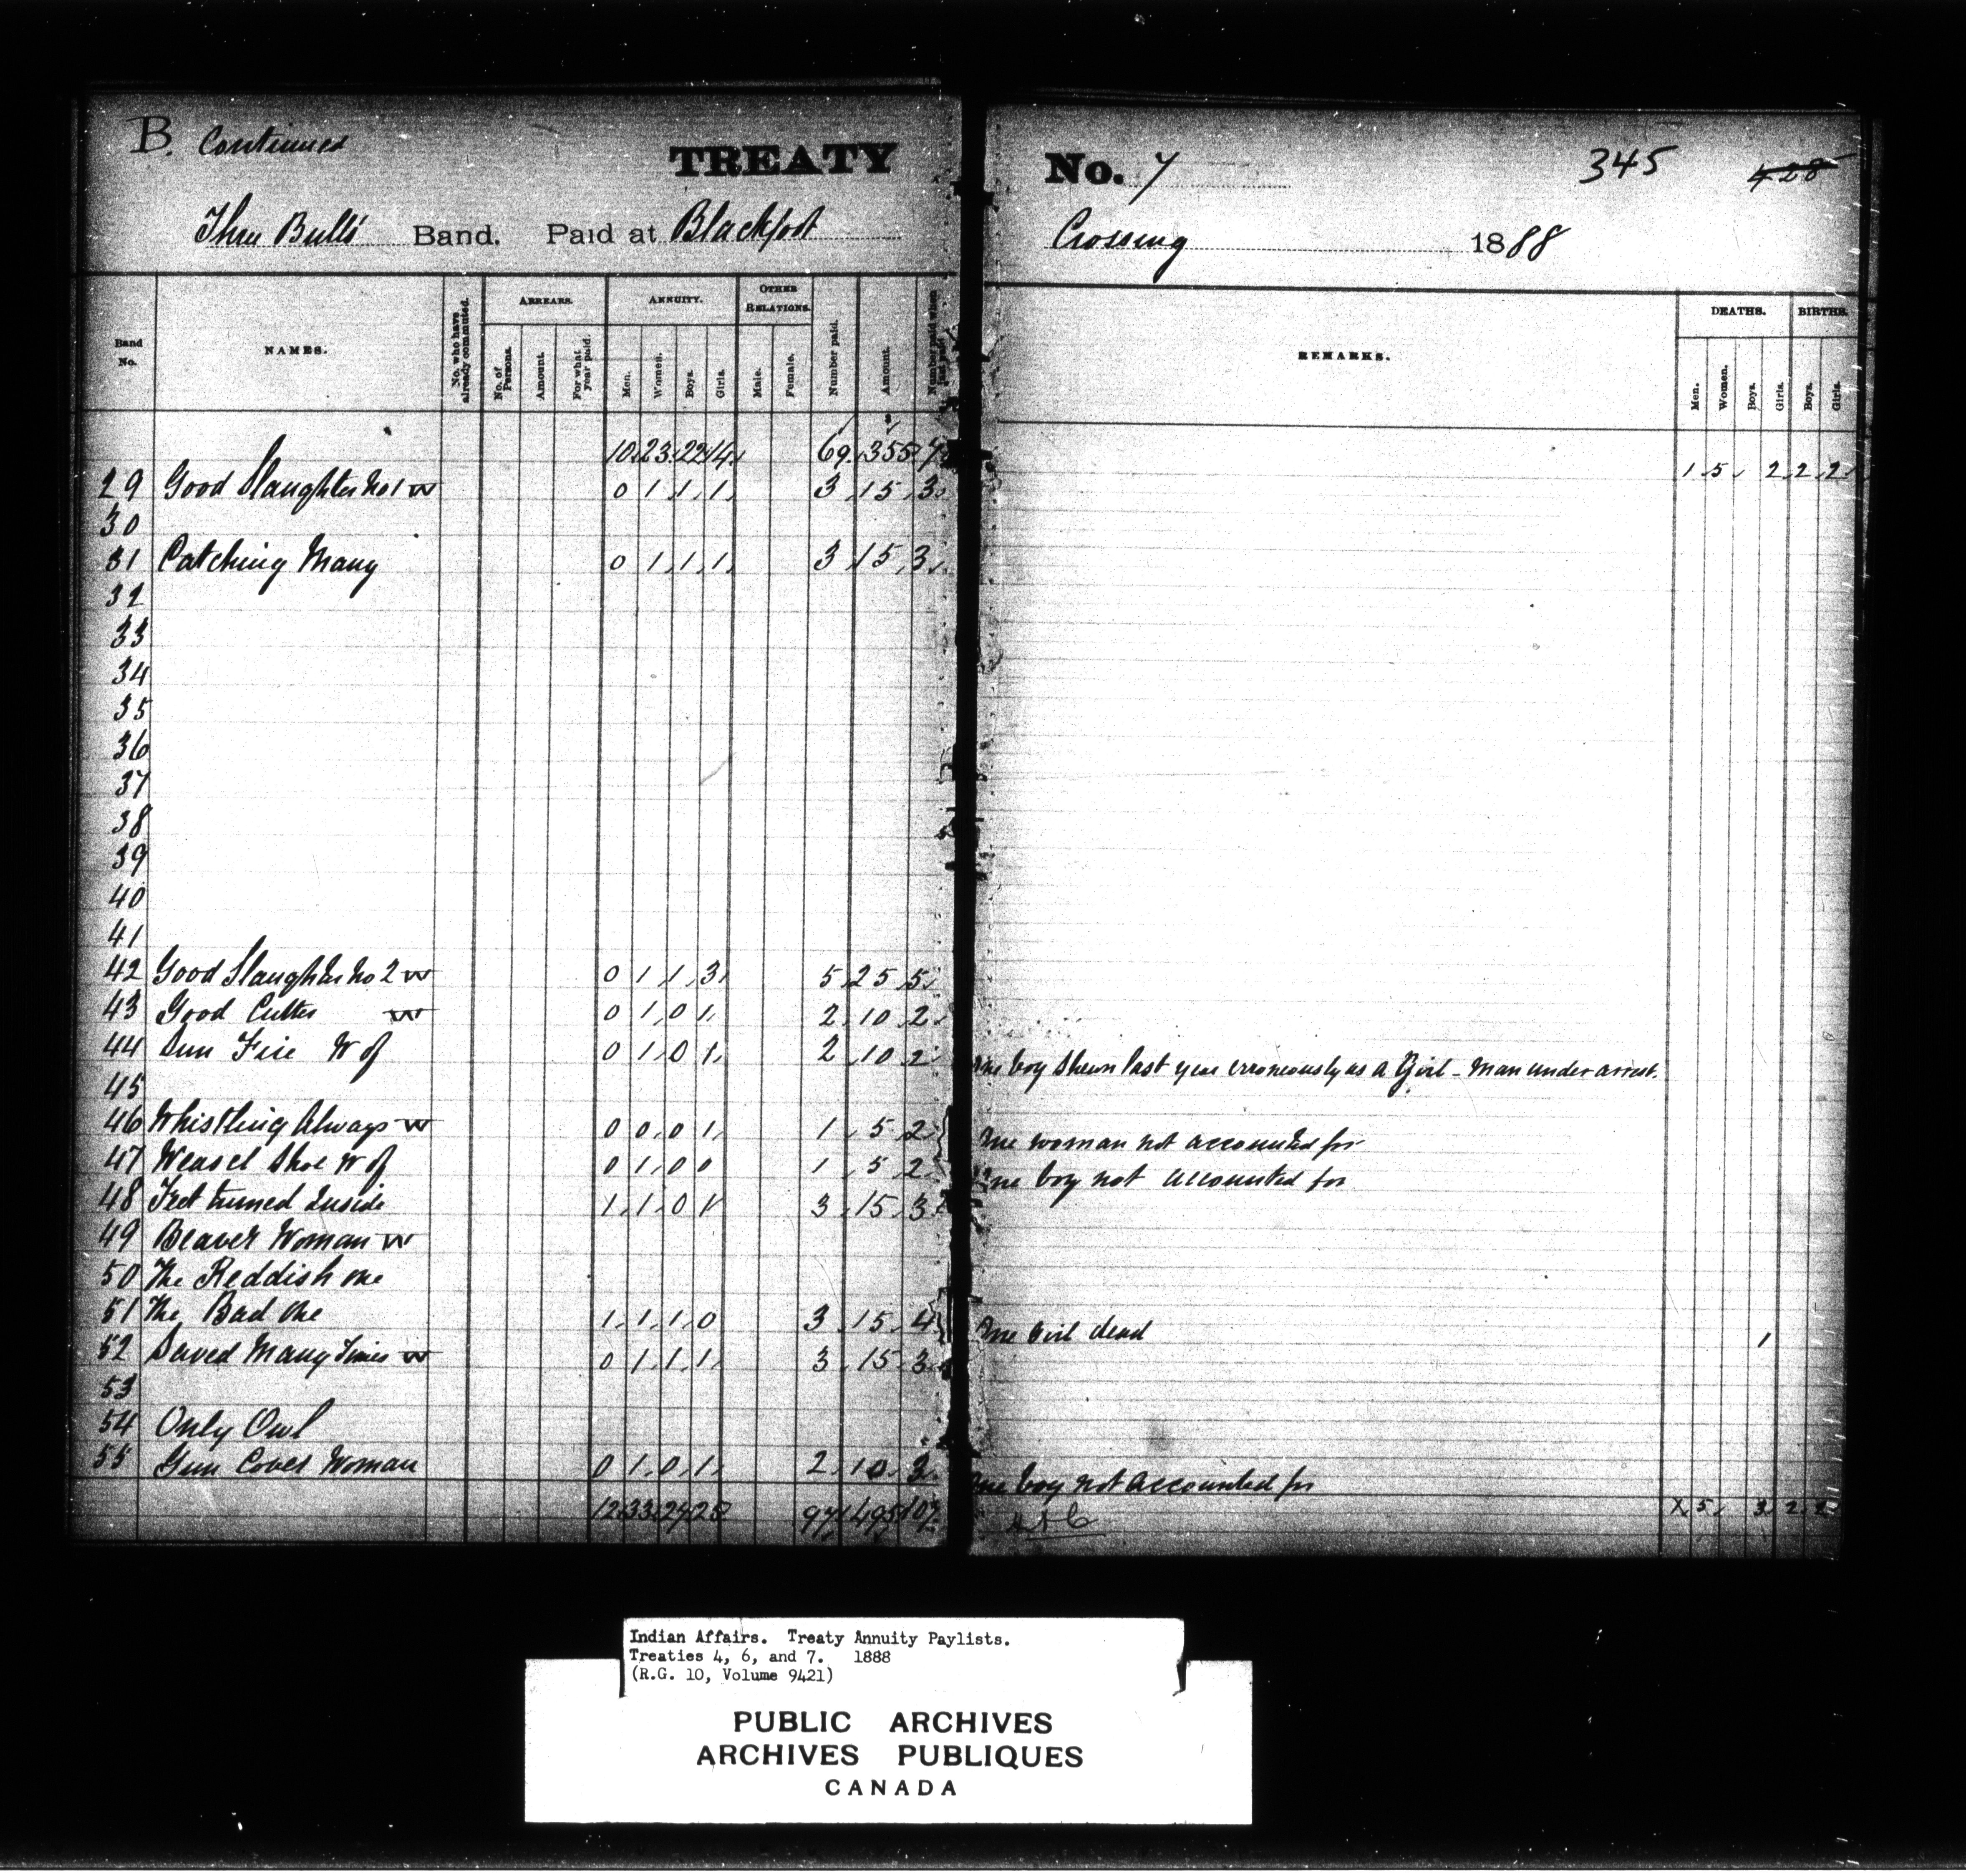 B. Continued
TREATY No. 7 345 428
Three Bulls' Band. Paid at Blackfoot Crossing 1888
Band No. NAMES. No. who have already commuted. ARREARS. No. of Persons. Amount. For what year paid. ANNUITY. Men. Women. Boys. Girls. OTHER RELATIONS. Male. Female. Number paid. Amount. Number paid when last paid REMARKS. DEATHS. Men. Women. Boys. Girls. BIRTHS. Boys. Girls.
10 23 22 14 69 355 1 5 2 2 2
29 Good Slaughter No 1 W 0 1 1 1 3 15 3
30
31 Catching Many 0 1 1 1 3 15 3
32
33
34
35
36
37
38
39
40
41
42 Good Slaughter No 2 W 0 1 1 3 5 25 5
43 Good Cutter W 0 1 0 1 2 10 2
44 Sun Fire W of 0 1 0 1 2 10 2 One boy shewn last year erroneously as a Girl - Man under arrest.
45
46 Whistling Always W 0 0 0 1 1 5 2 One woman not accounted for
47 Weasel Shoe W of 0 1 0 0 1 5 2 One boy not accounted for
48 Feet turned Inside 1 1 0 1 3 15 3
49 Beaver Woman W
50 The Reddish one
51 The Bad One 1 1 1 0 3 15 4 One Girl dead 1
52 Saved Many Times W 0 1 1 1 3 15 3
53
54 Only Owl
55 Gun Cover Woman 0 1 0 1 2 10 3 One boy not accounted for
12 33 27 25 97 495 107 5 3 2 2
Indian Affairs. Treaty Annuity Paylists.
Treaties 4, 6, and 7. 1888
(R.G. 10, Volume 9421)
PUBLIC ARCHIVES
ARCHIVES PUBLIQUES
CANADA